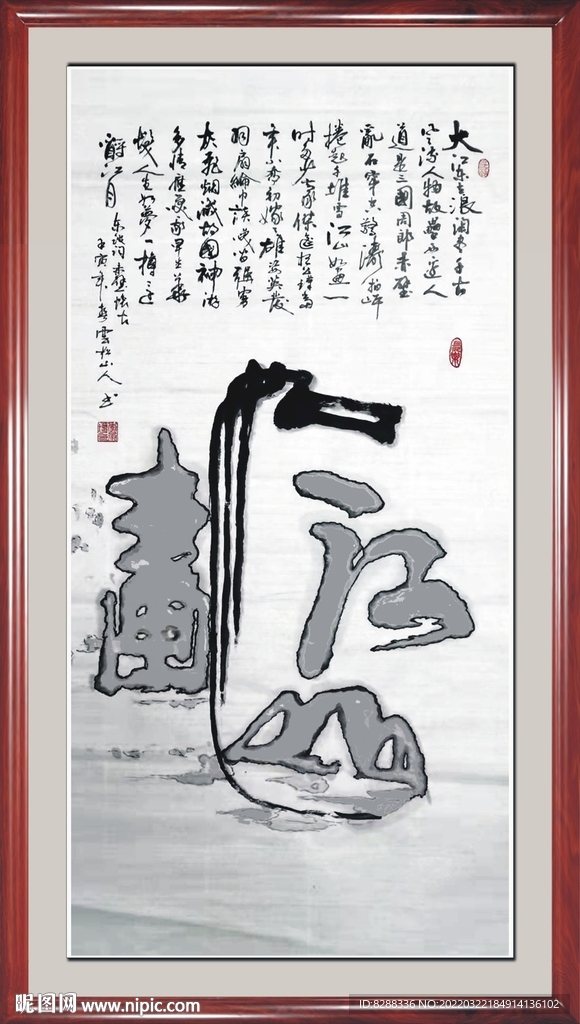 大江东去浪淘尽千古
风流人物故壘西边人
道是三國周郎赤壁
亂石穿空驚濤拍岸
捲起千堆雪江山如畫一
时多少豪傑遥想公瑾當
年小乔初嫁了雄姿英發
羽扇綸巾談笑间强虏
灰飛烟滅故國神游
多情應笑我早生華
髮人生如夢一樽还
酹江月
东坡词赤壁懷古
壬寅年春雲松山人书
江山
如
畫
昵图网 www.nipic.com
ID:8288336 NO:20220322184914136102